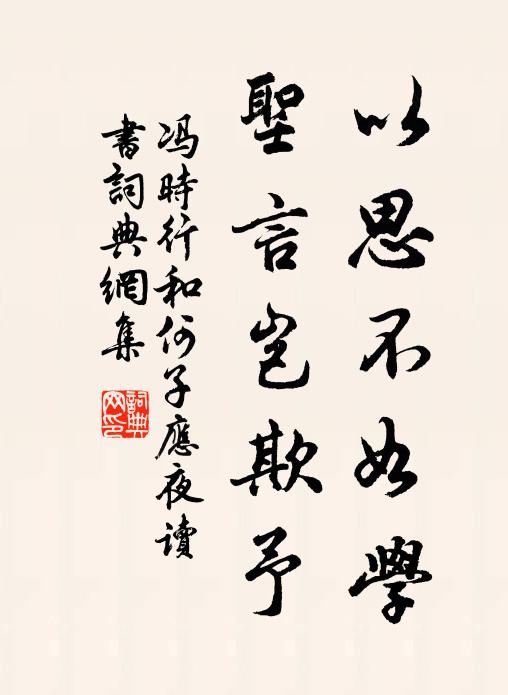 以思不如學
聖言豈欺予
馮時行和何子應夜讀
書詞典網集
詞典網印